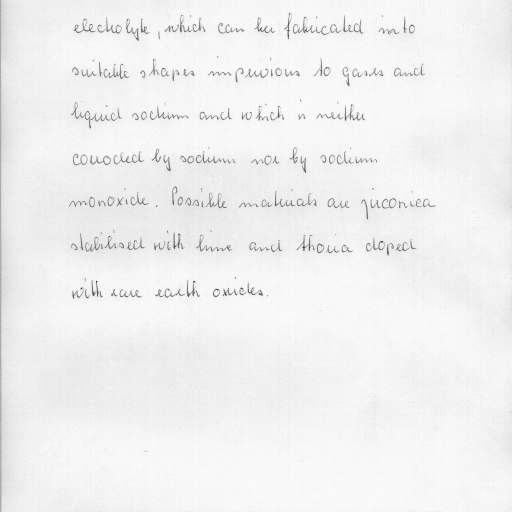 electrolyte, which can be fabricated into
suitable shapes impervious to gases and
liquid sodium and which is neither
corroded by sodium nor by sodium
monoxide. Possible materials are zirconia
stabilised with lime and thoria doped
with rare earth oxides.